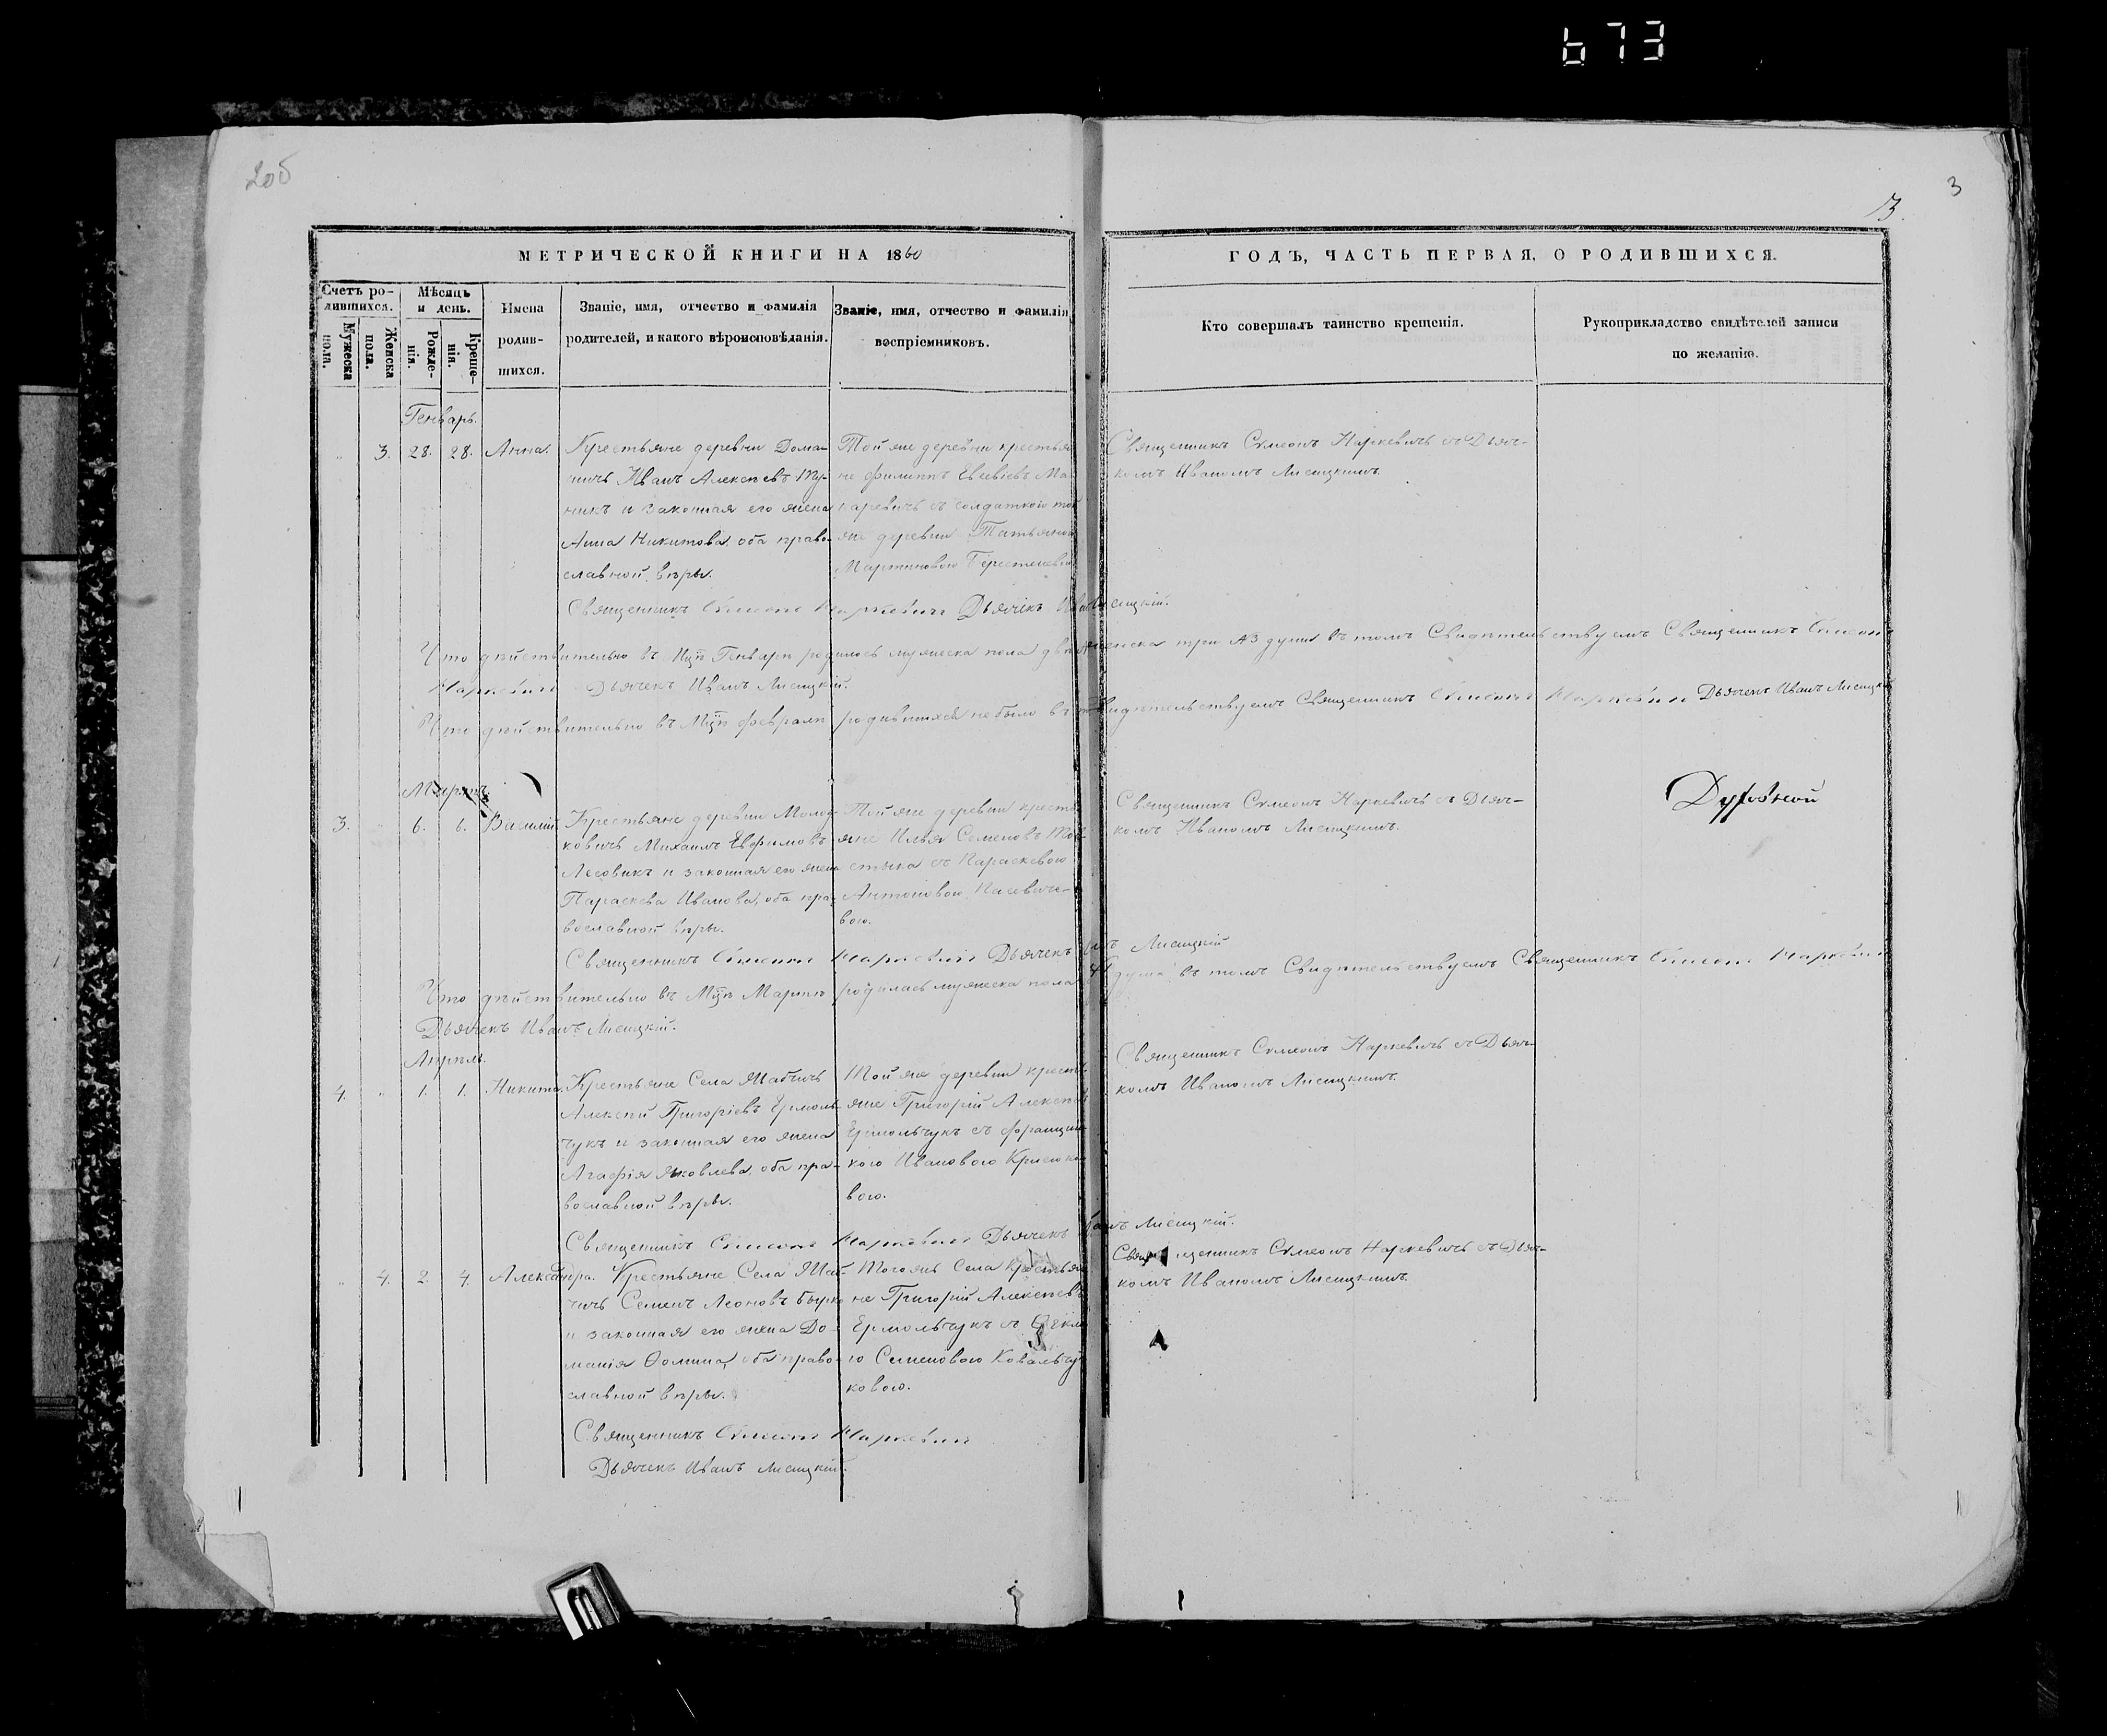 673
206
3
3.
МЕТРИЧЕСКОЙ КНИГИ НА 1860
ГОДЪ, ЧАСТЬ ПЕРВАЯ, О РОДИВШИХСЯ.
Счетъ ро-
дившихся.
Мужеска
пола.
Женска
пола.
Мѣсяцъ
и день.
Рожде-
нія.
Креще-
нія.
Имена
родив-
шихся.
Званіе, имя, отчество и фамилія
родителей, и какого вѣроисповѣданія.
Званіе, имя, отчество и фамилія
воспріемниковъ.
Кто совершалъ таинство крещенія.
Рукоприкладство свидѣтелей записи
по желанію.
Генварь.
„ 3. 28. 28. Анна.
Крестьяне деревни Дома-
чичь Иванъ Алексѣевъ
и законная его жена
Анна Никитова, оба право-
славной вѣры.
Той же деревни крестья
не Филиппъ Евсевіевъ Ма
каревичъ съ солдаткою той
же деревни Татьяною
Мартиновою
Священникъ Сѵмеонъ Наркевичъ съ Дьяч-
комъ Иваномъ Лисицкимъ.
Священникъ Сѵмеонъ Наркевичъ Дьячекъ Иванъ Лисицкій.
Что дѣйствительно въ Мцѣ Генварѣ родилось мужеска пола два женска три души въ томъ Свидѣтельствуемъ Священникъ Сѵмеонъ
Наркевичъ Дьячекъ Иванъ Лисицкій.
Что дѣйствительно въ Мцѣ Февралѣ родившихся не было въ томъ Свидѣтельствуемъ Священникъ Сѵмеонъ Наркевичъ Дьячекъ Иванъ Лисицкій
Мартъ.
3. „ 6. 6. Василій
Крестьяне деревни Молод-
ковичь Михаилъ Евфимовъ
Лесовикъ и законная его жена
Параскева Иванова, оба пра-
вославной вѣры.
Той же деревни кресть
яне Илья Семеновъ
съ Параскевою
Антоновою
вою.
Священникъ Сѵмеонъ Наркевичъ съ Дьяч-
комъ Иваномъ Лисицкимъ.
Духовной
Священникъ Сѵмеонъ Наркевичъ Дьячекъ Иванъ Лисицкій
Что дѣйствительно въ Мцѣ Мартѣ родилась мужеска пола душа въ томъ Свидѣтельствуемъ Священникъ Сѵмеонъ Наркевичъ
Дьячекъ Иванъ Лисицкій.
Апрѣль.
4. „ 1. 1. Никита.
Крестьяне Села Мабчичь
Алексѣй Григоріевъ Ермоль-
чукъ и законная его жена
Агафія Яковлева, оба пра-
вославной вѣры.
Той же деревни кресть
яне Григорій Алексѣевъ
Ермольчукъ съ Францишъ-
кою Ивановою
вою.
Священникъ Сѵмеонъ Наркевичъ съ Дьяч-
комъ Иваномъ Лисицкимъ.
Священникъ Сѵмеонъ Наркевичъ Дьячекъ Иванъ Лисицкій.
„ 4. 2. 4. Александра.
Крестьяне Села Маб-
чичь Семенъ Леоновъ Бурко
и законная его жена До-
манія Ѳомина, оба право-
славной вѣры.
Тогожъ Села крестья
не Григорій Алексѣевъ
Ермольчукъ съ Ѳекло
ю Семеновою Ковальчу
ковою.
Священникъ Сѵмеонъ Наркевичъ съ Дьяч-
комъ Иваномъ Лисицкимъ.
Священникъ Сѵмеонъ Наркевичъ
Дьячекъ Иванъ Лисицкій.